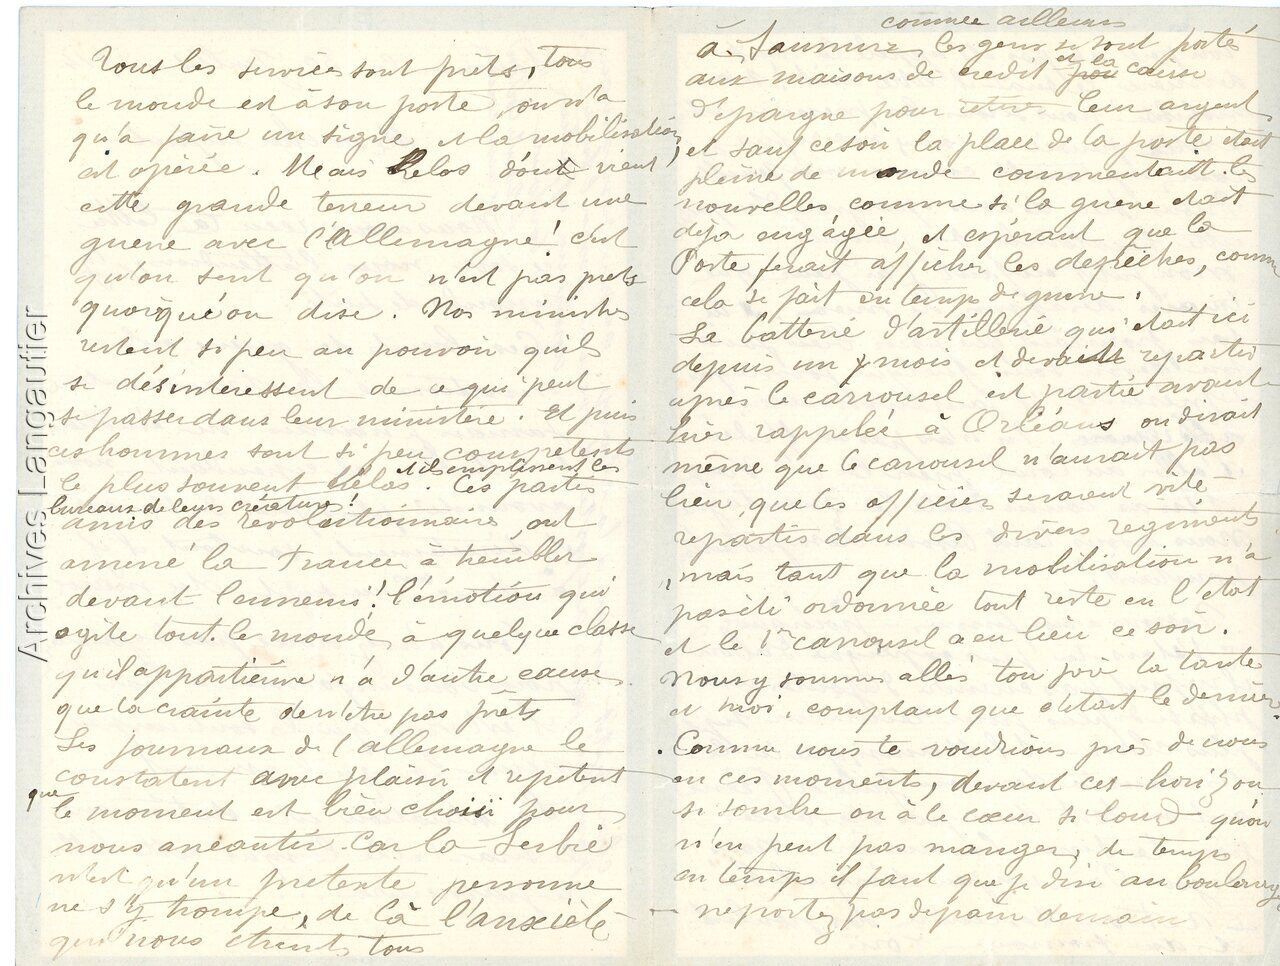 Tous les services sont prêts, tous
le monde est à son poste, on n'a
qu'à faire un signe et la mobilisation
est opérée. Mais Helas d'où vient,
cette grande terreur devant une
guerre avec l'Allemagne! c'est
qu'on sent qu'on n'est pas prets
quoiqu'on dise. Nos ministres
restent si peu au pouvoir qu'ils
se désintéressent de ce qui peut
se passer dans leur ministère. Et puis
ces hommes sont si peu compétents
le plus souvent hélas. et ils emplissent les
bureaux de leurs créatures! Ces partis
amis des revolutionnaires, ont
amené la France à trembler
devant l'ennemi! l'émotion qui
agite tout le monde, à quelque classe
qu'il appartienne n'a d'autre cause
que la crainte de n'être pas prêts
Les journaux de l'allemagne le
constatent avec plaisir et repètent
que le moment est bien choisi pour
nous anéantir. Car la Serbie
n'est qu'un pretexte personne
ne s'y trompe, de là l'anxièté
qui nous étreint tous
comme ailleurs
à Saumur les gens se sont portés
aux maisons de credit et la caisse
d'épargne pour retirer leur argent
et sauf ce soir la place de la poste était
pleine de monde commentant les
nouvelles comme si la guerre était
déjà engagée, et espérant que la
Poste ferait afficher les depêches, comme
cela se fait en temps de guerre.
La batterie d'artillerie qui était ici
depuis un mois et devait repartir
après le carrousel est partie avant
hier rappelée à Orléans on disait
même que le carrousel n'aurait pas
lieu, que les officiers seraient vite
repartis dans les divers regiments
mais tant que la mobilisation n'a
pas été ordonnée tout reste en l'état
et le 1er carrousel a eu lieu ce soir.
Nous y sommes allés ton père ta tante
et moi, comptant que c'était le dernier.
Comme nous te voudrions près de nous
en ces moments, devant cet horizon
si sombre on a le cœur si lourd qu'on
n'en peut pas manger, de temps
en temps il faut que je dise au boulanger
ne portez pas de pain demain
Archives Langautier